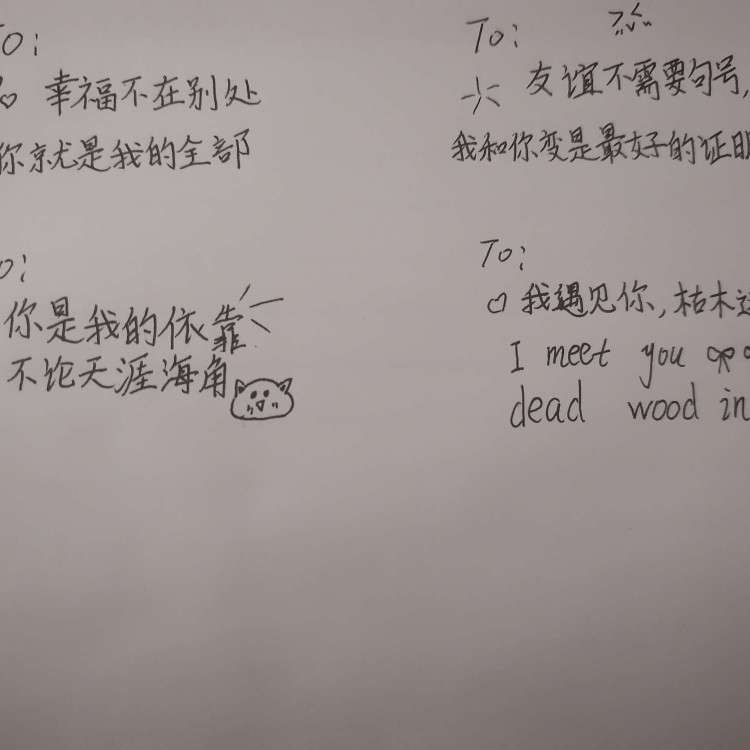 To:
幸福不在别处
你就是我的全部
To:
友谊不需要句号,
我和你变是最好的证明
To:
你是我的依靠
不论天涯海角
To:
我遇见你,枯木
I meet you
dead wood in